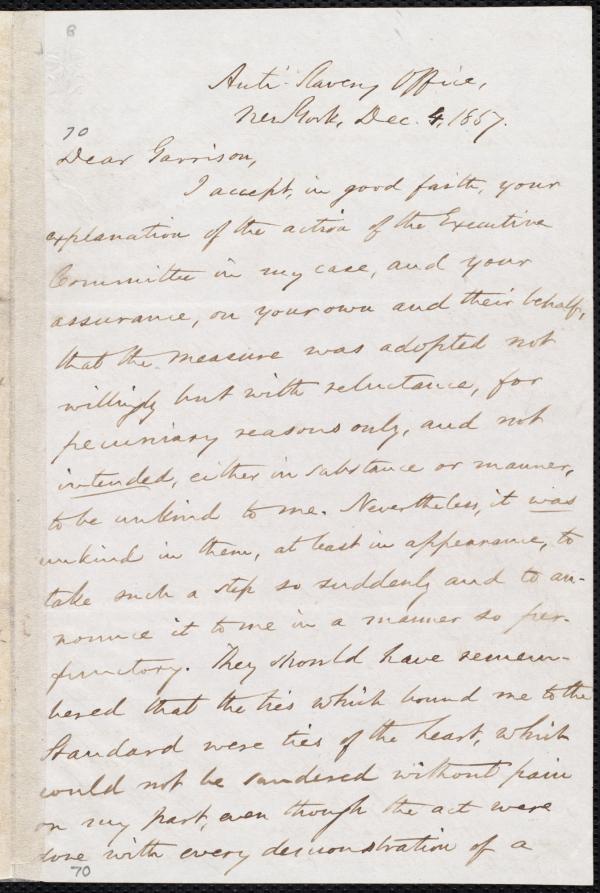 8
Anti-Slavery Office,
New York, Dec. 4, 1857.
70
Dear Garrison,
I accept, in good faith, your
explanation of the action of the Executive
Committee in my case, and your
assurance, on your own and their behalf,
that the measure was adopted not
willingly but with reluctance, for
pecuniary reasons only, and not
intended, either in substance or manner,
to be unkind to me. Nevertheless, it was
unkind in them, at least in appearance, to
take such a step so suddenly and to an-
nounce it to me in a manner so per-
functory. They should have remem-
bered that the ties which bound me to the
Standard were ties of the heart, which
could not be sundered without pain
on my part, even though the act were
done with every demonstration of a
70